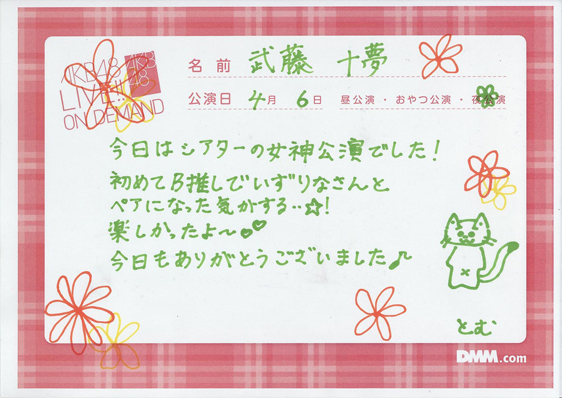 AKB48
LIVE!!
ON DEMAND
AKB
48
名前 武藤 十夢
公演日 4月 6日 昼公演・おやつ公演・夜公演
今日はシアターの女神公演でした!
初めてB推しでいずりなさんと
ペアになった気がする··☆!
楽しかったよ〜
今日もありがとうございました♪
とむ
DMM.com